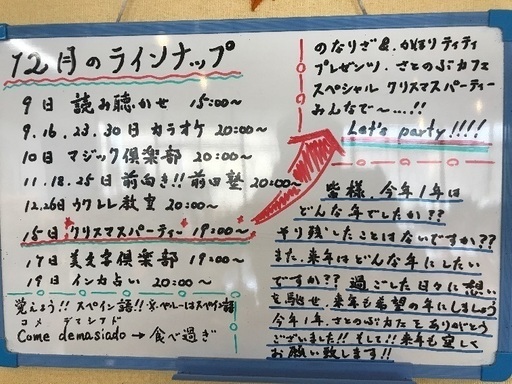 12月のラインナップ
9日 読み聴かせ 15:00～
9.16.23.30日 カラオケ 20:00～
10日 マジック倶楽部 20:00～
11.18.25日 前向き!!前田塾 20:00～
12.26日 ウクレレ教室 20:00～
15日 クリスマスパーティー 19:00～
17日 美文字倶楽部 19:00～
19日 インカ占い 20:00～
覚えよう!! スペイン語!!
コメ デマシアド
Come demasiado → 食べ過ぎ
のなりざ&.かほりティティ
プレゼンツ.さとのぶカフェ
スペシャル クリスマスパーティー
みんなで～....!!
Let's party!!!!
皆様、今年1年は
どんな年でしたか??
やり残したことはないですか??
また、来年はどんな年にしたい
ですか?? 過ごした日々に想い
を馳せ、来年も希望の年にしましょう
今年1年、さとのぶカフェをありがとう
ございました!! そして!!来年も宜しく
お願い致します!!